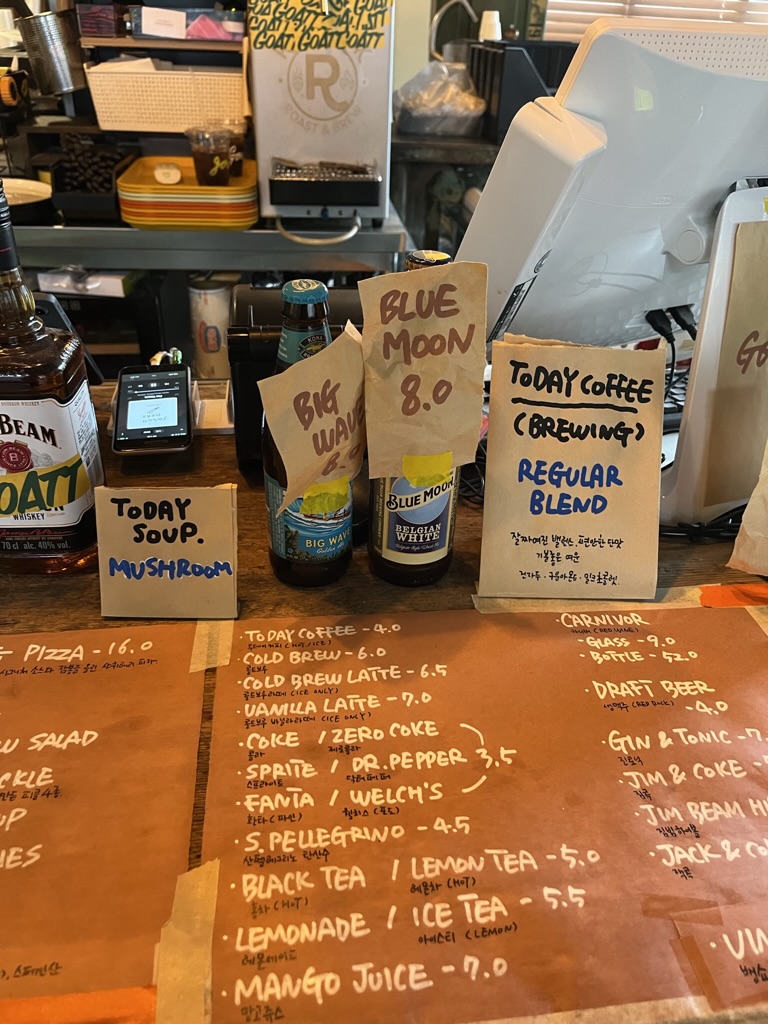 GOAT! GOATT
R
ROAST & BREW
BEAM
OATT
WHISKEY
70 cl alc. 40% vol.
TODAY
SOUP.
MUSHROOM
BIG
WAVE
BIG WAVE
Golden Ale
BLUE
MOON
8.0
BLUE MOON
BELGIAN
WHITE
TODAY COFFEE
(BREWING)
REGULAR
BLEND
잘짜여진 밸런스, 편안한 단맛
기분좋은 여운
PIZZA - 16.0
SALAD
스페인산
·TODAY COFFEE - 4.0
(HOT / ICE)
·COLD BREW - 6.0
콜드브루
·COLD BREW LATTE - 6.5
콜드브루라떼 (ICE ONLY)
·VANILLA LATTE - 7.0
콜드브루 바닐라라떼 (ICE ONLY)
·COKE / ZERO COKE
콜라 제로콜라
·SPRITE / DR.PEPPER 3.5
스프라이트 닥터페퍼
·FANTA / WELCH'S
환타 (파인) 웰치스 (포도)
·S.PELLEGRINO - 4.5
산펠레그리노 탄산수
·BLACK TEA / LEMON TEA - 5.0
홍차 (HOT) 레몬차 (HOT)
·LEMONADE / ICE TEA - 5.5
레몬에이드 아이스티 (LEMON)
·MANGO JUICE - 7.0
망고쥬스
·CARNIVOR
(RED WINE)
·GLASS - 9.0
·BOTTLE - 52.0
·DRAFT BEER
생맥주 (RED ROCK) - 4.0
·GIN & TONIC - 7.
진토닉
·JIM & COKE -
잭콕
·JIM BEAM HI
짐빔하이볼
·JACK & CO
잭콕